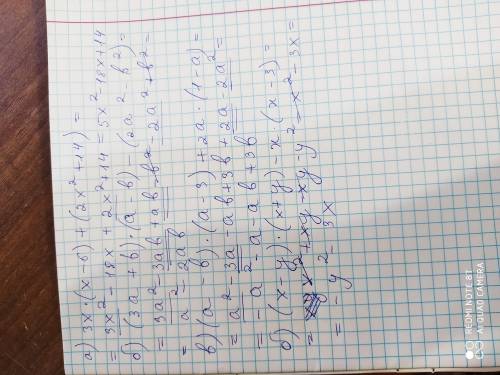 а) 3x·(x-6)+(2x²+14)=
=3x²-18x+2x²+14=5x²-18x+14
б) (3a+b)·(a-b)-(2a²-b²)=
=3a²-3ab+ab-b²-2a²+b²=
=a²-2ab
в) (a-b)·(a-3)+2a·(1-a)=
=a²-3a-ab+3b+2a-2a²=
=-a²-a-ab+3b
б) (x-y)·(x+y)-x·(x-3)=
x²+xy-xy-y²-x²-3x=
=-y²-3x
REDMI NOTE 8T
AI QUAD CAMERA